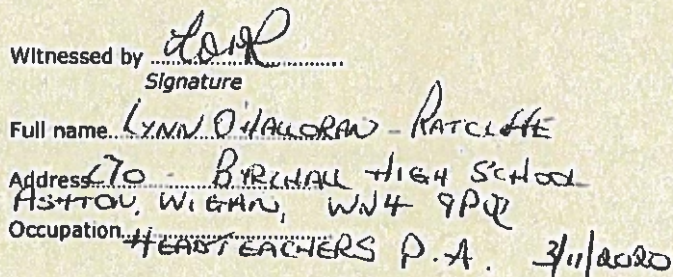 Witnessed by
Signature
Full name LYNN O'HALLORAN - RATCLIFFE
Address C/O - BYRCHALL HIGH SCHOOL
ASHTON, WIGAN, WN4 9PQ
Occupation HEADTEACHERS P.A. 3/11/2020